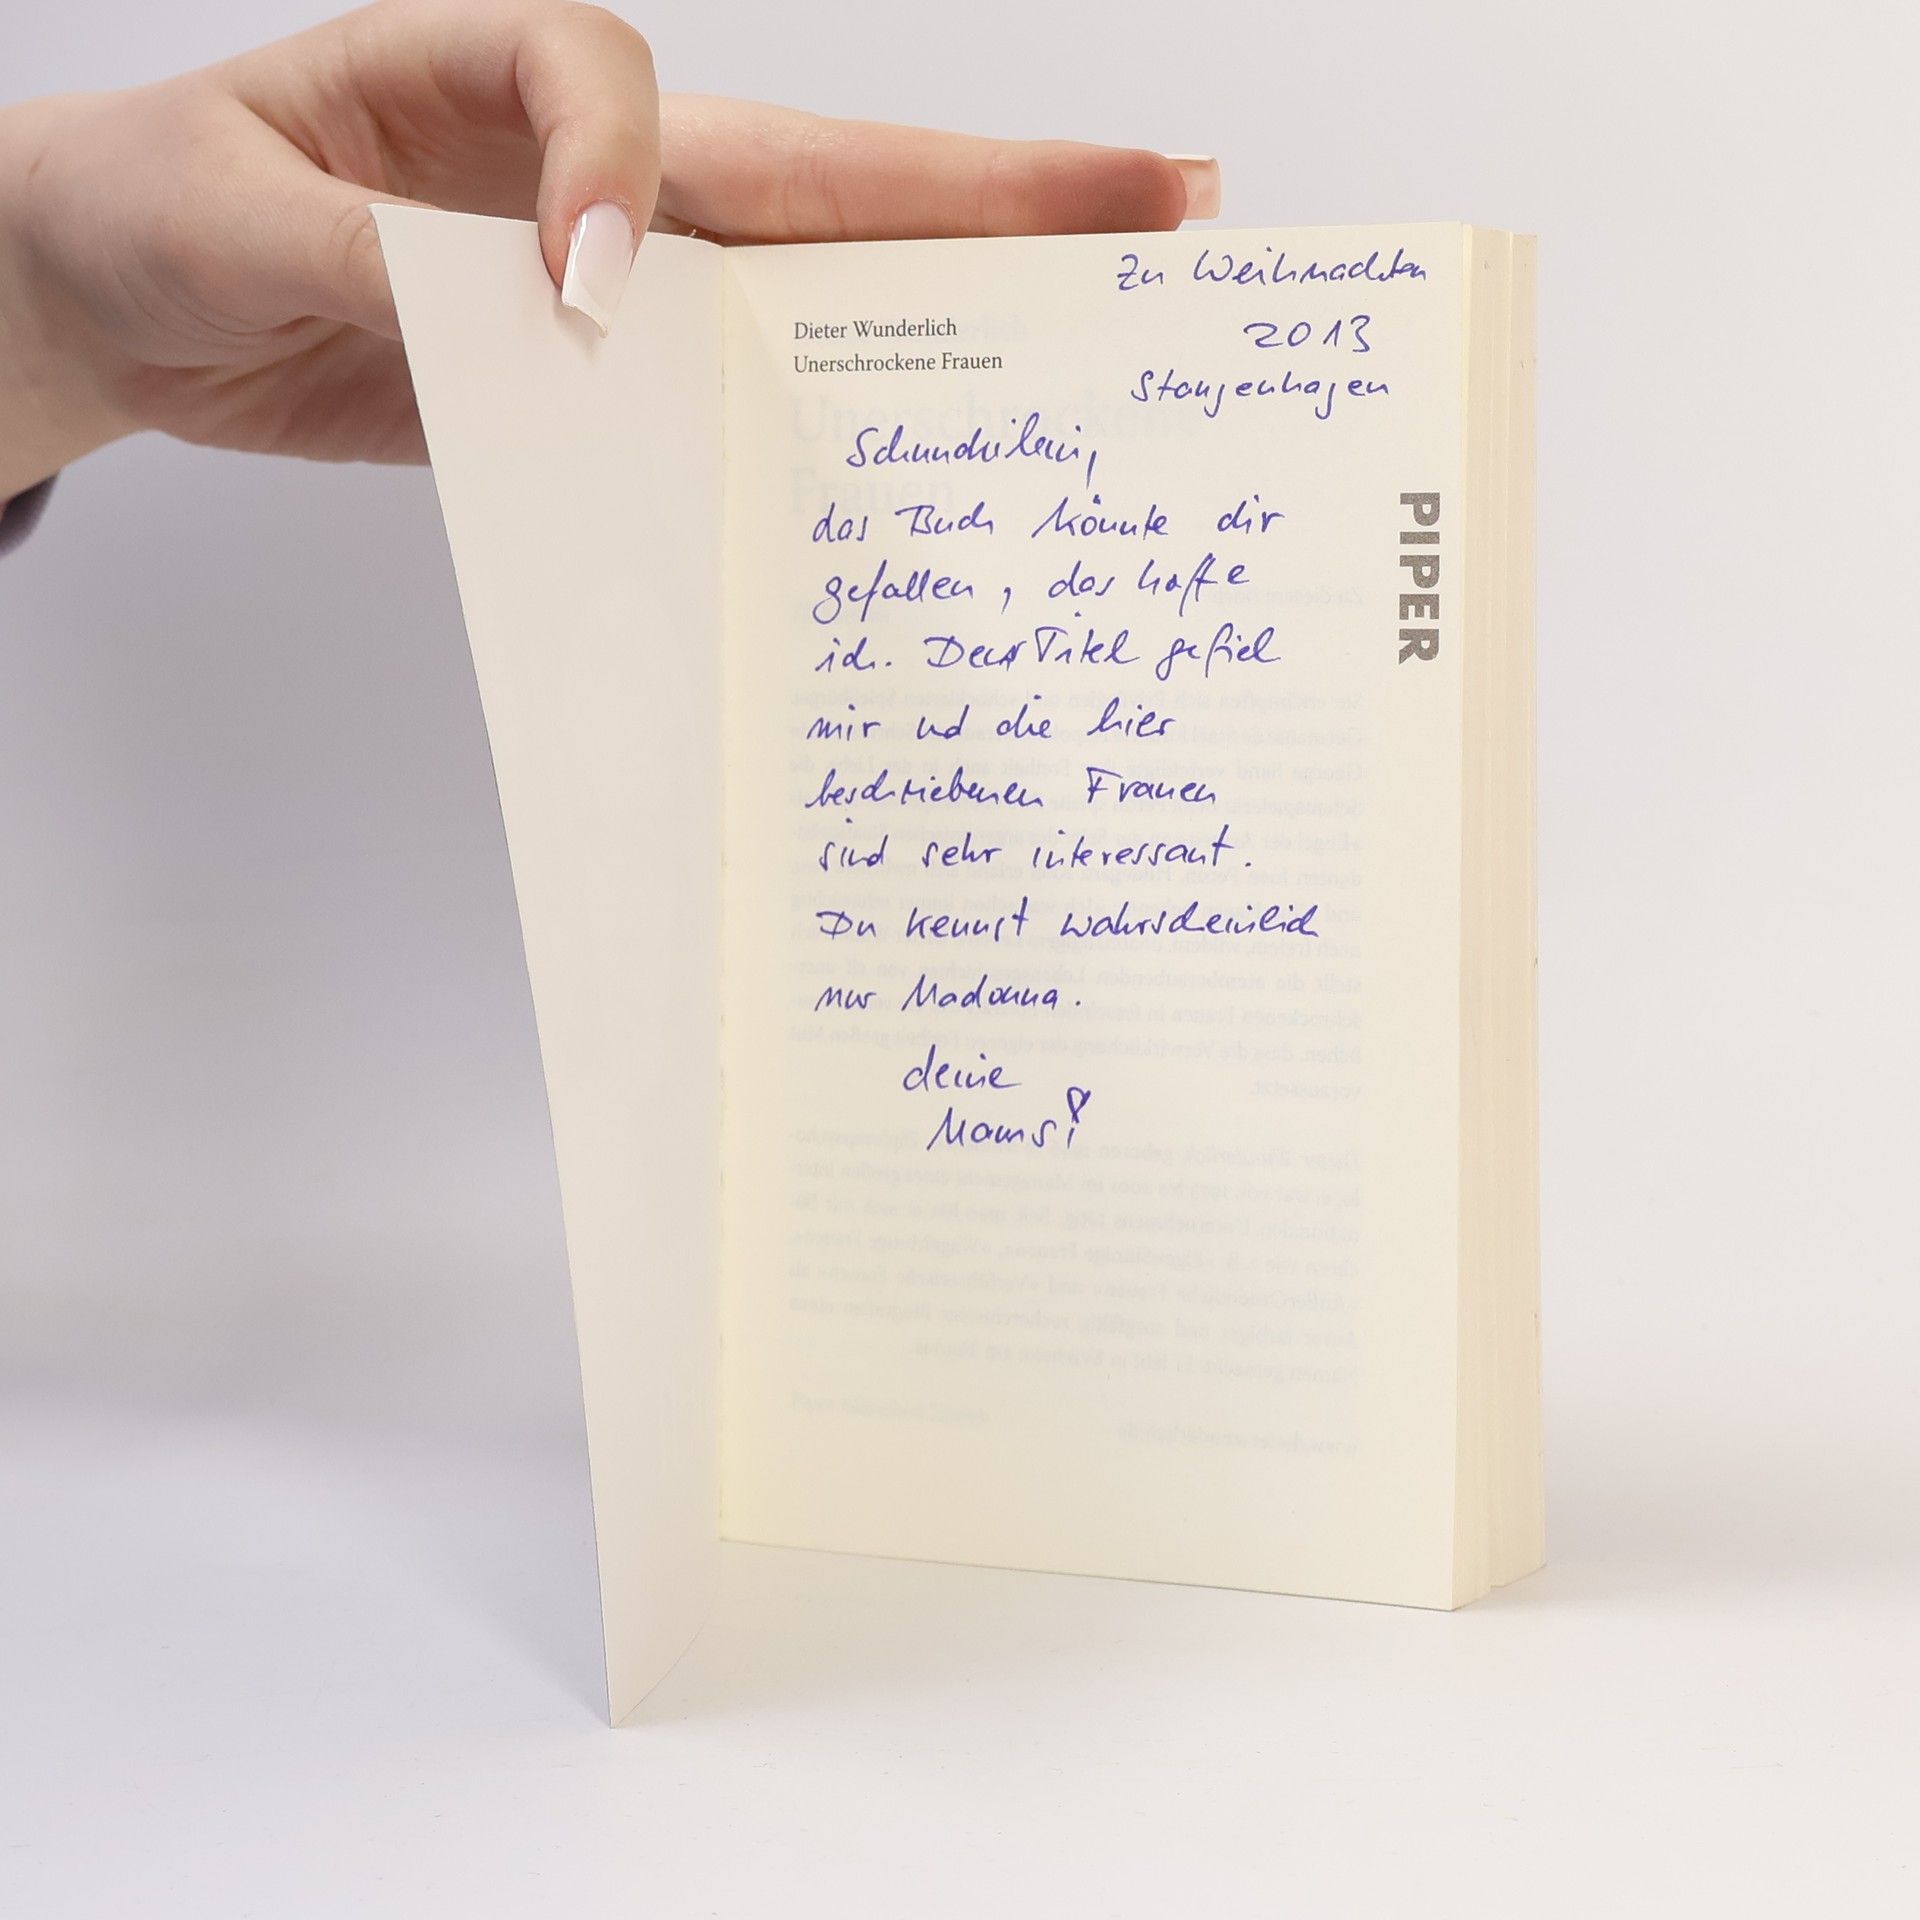 Zu Weihnachten
2013
Stangenhagen
Dieter Wunderlich
Unerschrockene Frauen
PIPER
das Buch könnte dir
gefallen, das hoffe
ich. Der Titel gefiel
mir und die hier
beschriebenen Frauen
sind sehr interessant.
Du kennst wahrscheinlich
nur Madonna.
deine
Mamsi